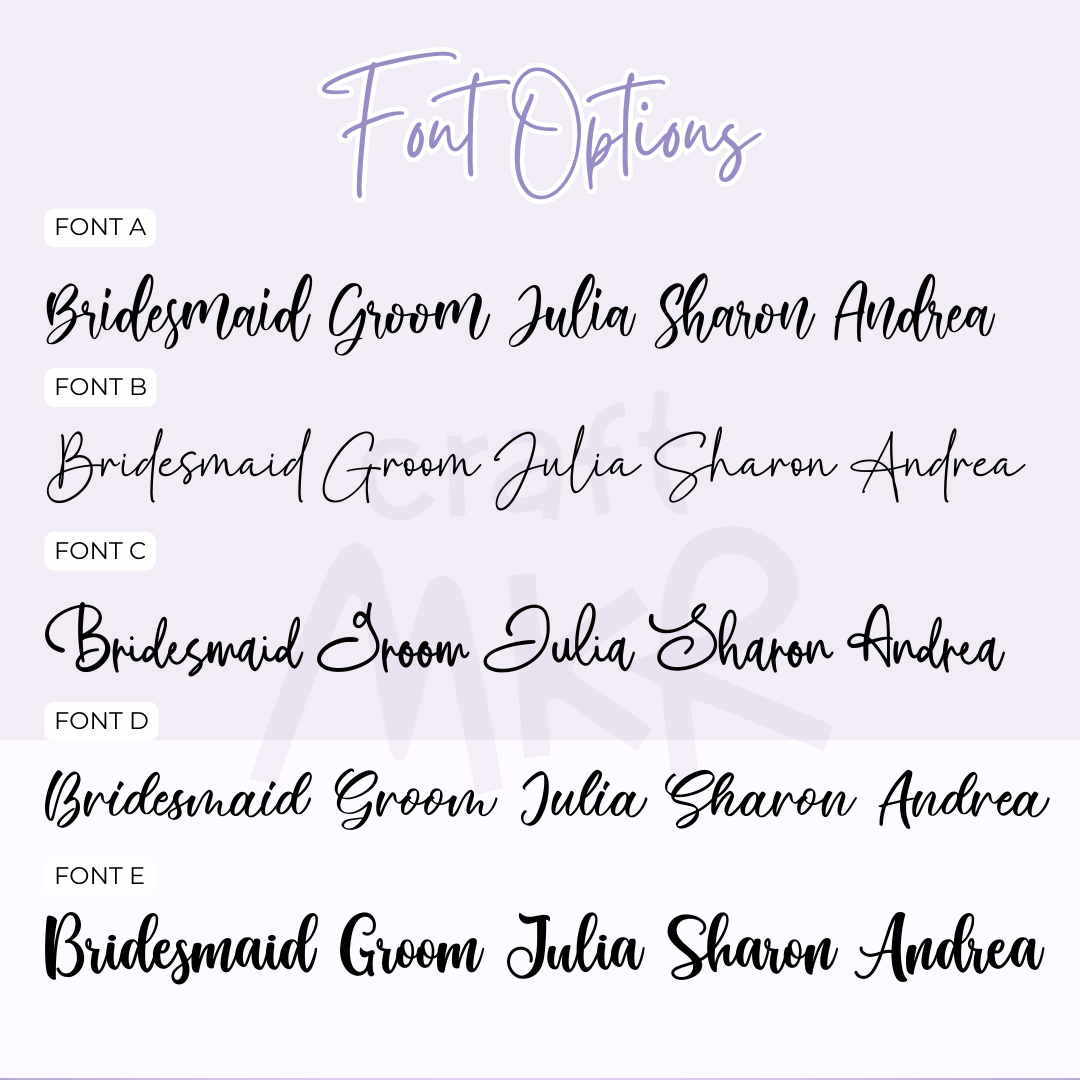 Font Options
FONT A
Bridesmaid Groom Julia Sharon Andrea
FONT B
Bridesmaid Groom Julia Sharon Andrea
craft
FONT C
MKR
Bridesmaid Groom Julia Sharon Andrea
FONT D
Bridesmaid Groom Julia Sharon Andrea
FONT E
Bridesmaid Groom Julia Sharon Andrea